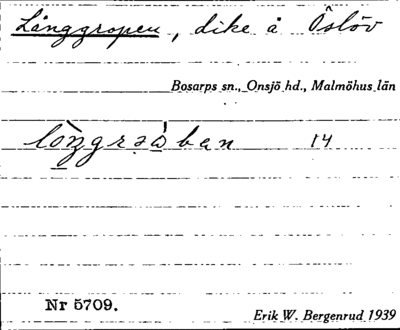 Långgropen, dike å Öslöv
Bosarps sn., Onsjö hd., Malmöhus län
14
Nr 5709.
Erik W. Bergenrud 1939